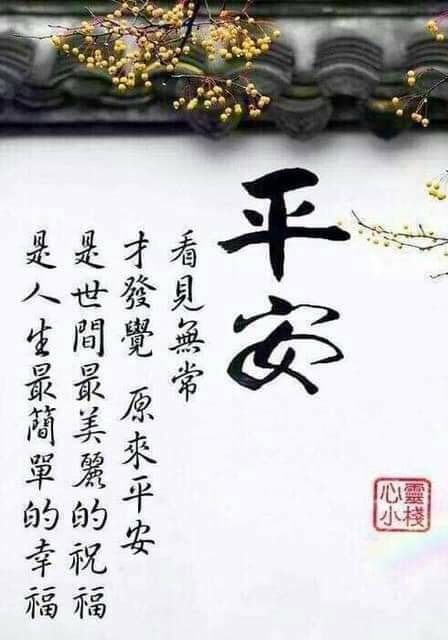 平安
看見無常
才發覺 原來平安
是世間最美麗的祝福
是人生最簡單的幸福
心靈小棧